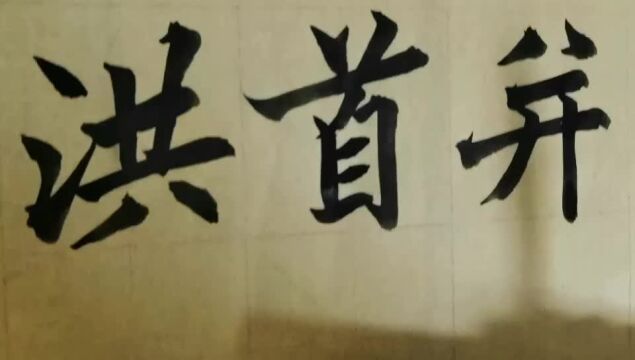 洪首并